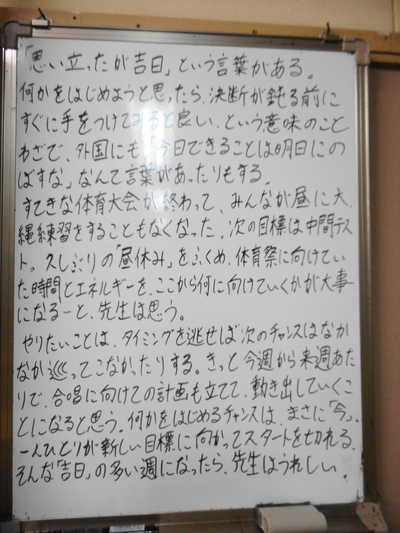 「思い立ったが吉日」という言葉がある。
何かをはじめようと思ったら、決断が鈍る前に
すぐに手をつけてみると良い、という意味のこと
わざで、外国にも「今日できることは明日にの
ばすな」なんて言葉があったりもする。
すてきな体育大会が終わって、みんなが昼に大
縄練習をすることもなくなった。次の目標は中間テス
ト。久しぶりの「昼休み」をふくめ、体育祭に向けてい
た時間とエネルギーを、ここから何に向けていくかが大事
になるーと、先生は思う。
やりたいことは、タイミングを逃せば次のチャンスはなか
なか巡ってこなかったりする。きっと今週から来週あた
りで、合唱に向けての計画も立てて、動き出していくこ
とになると思う。何かをはじめるチャンスは、まさに「今」。
一人ひとりが新しい目標に向かってスタートを切れる、
そんな「吉日」の多い週になったら、先生はうれしい。